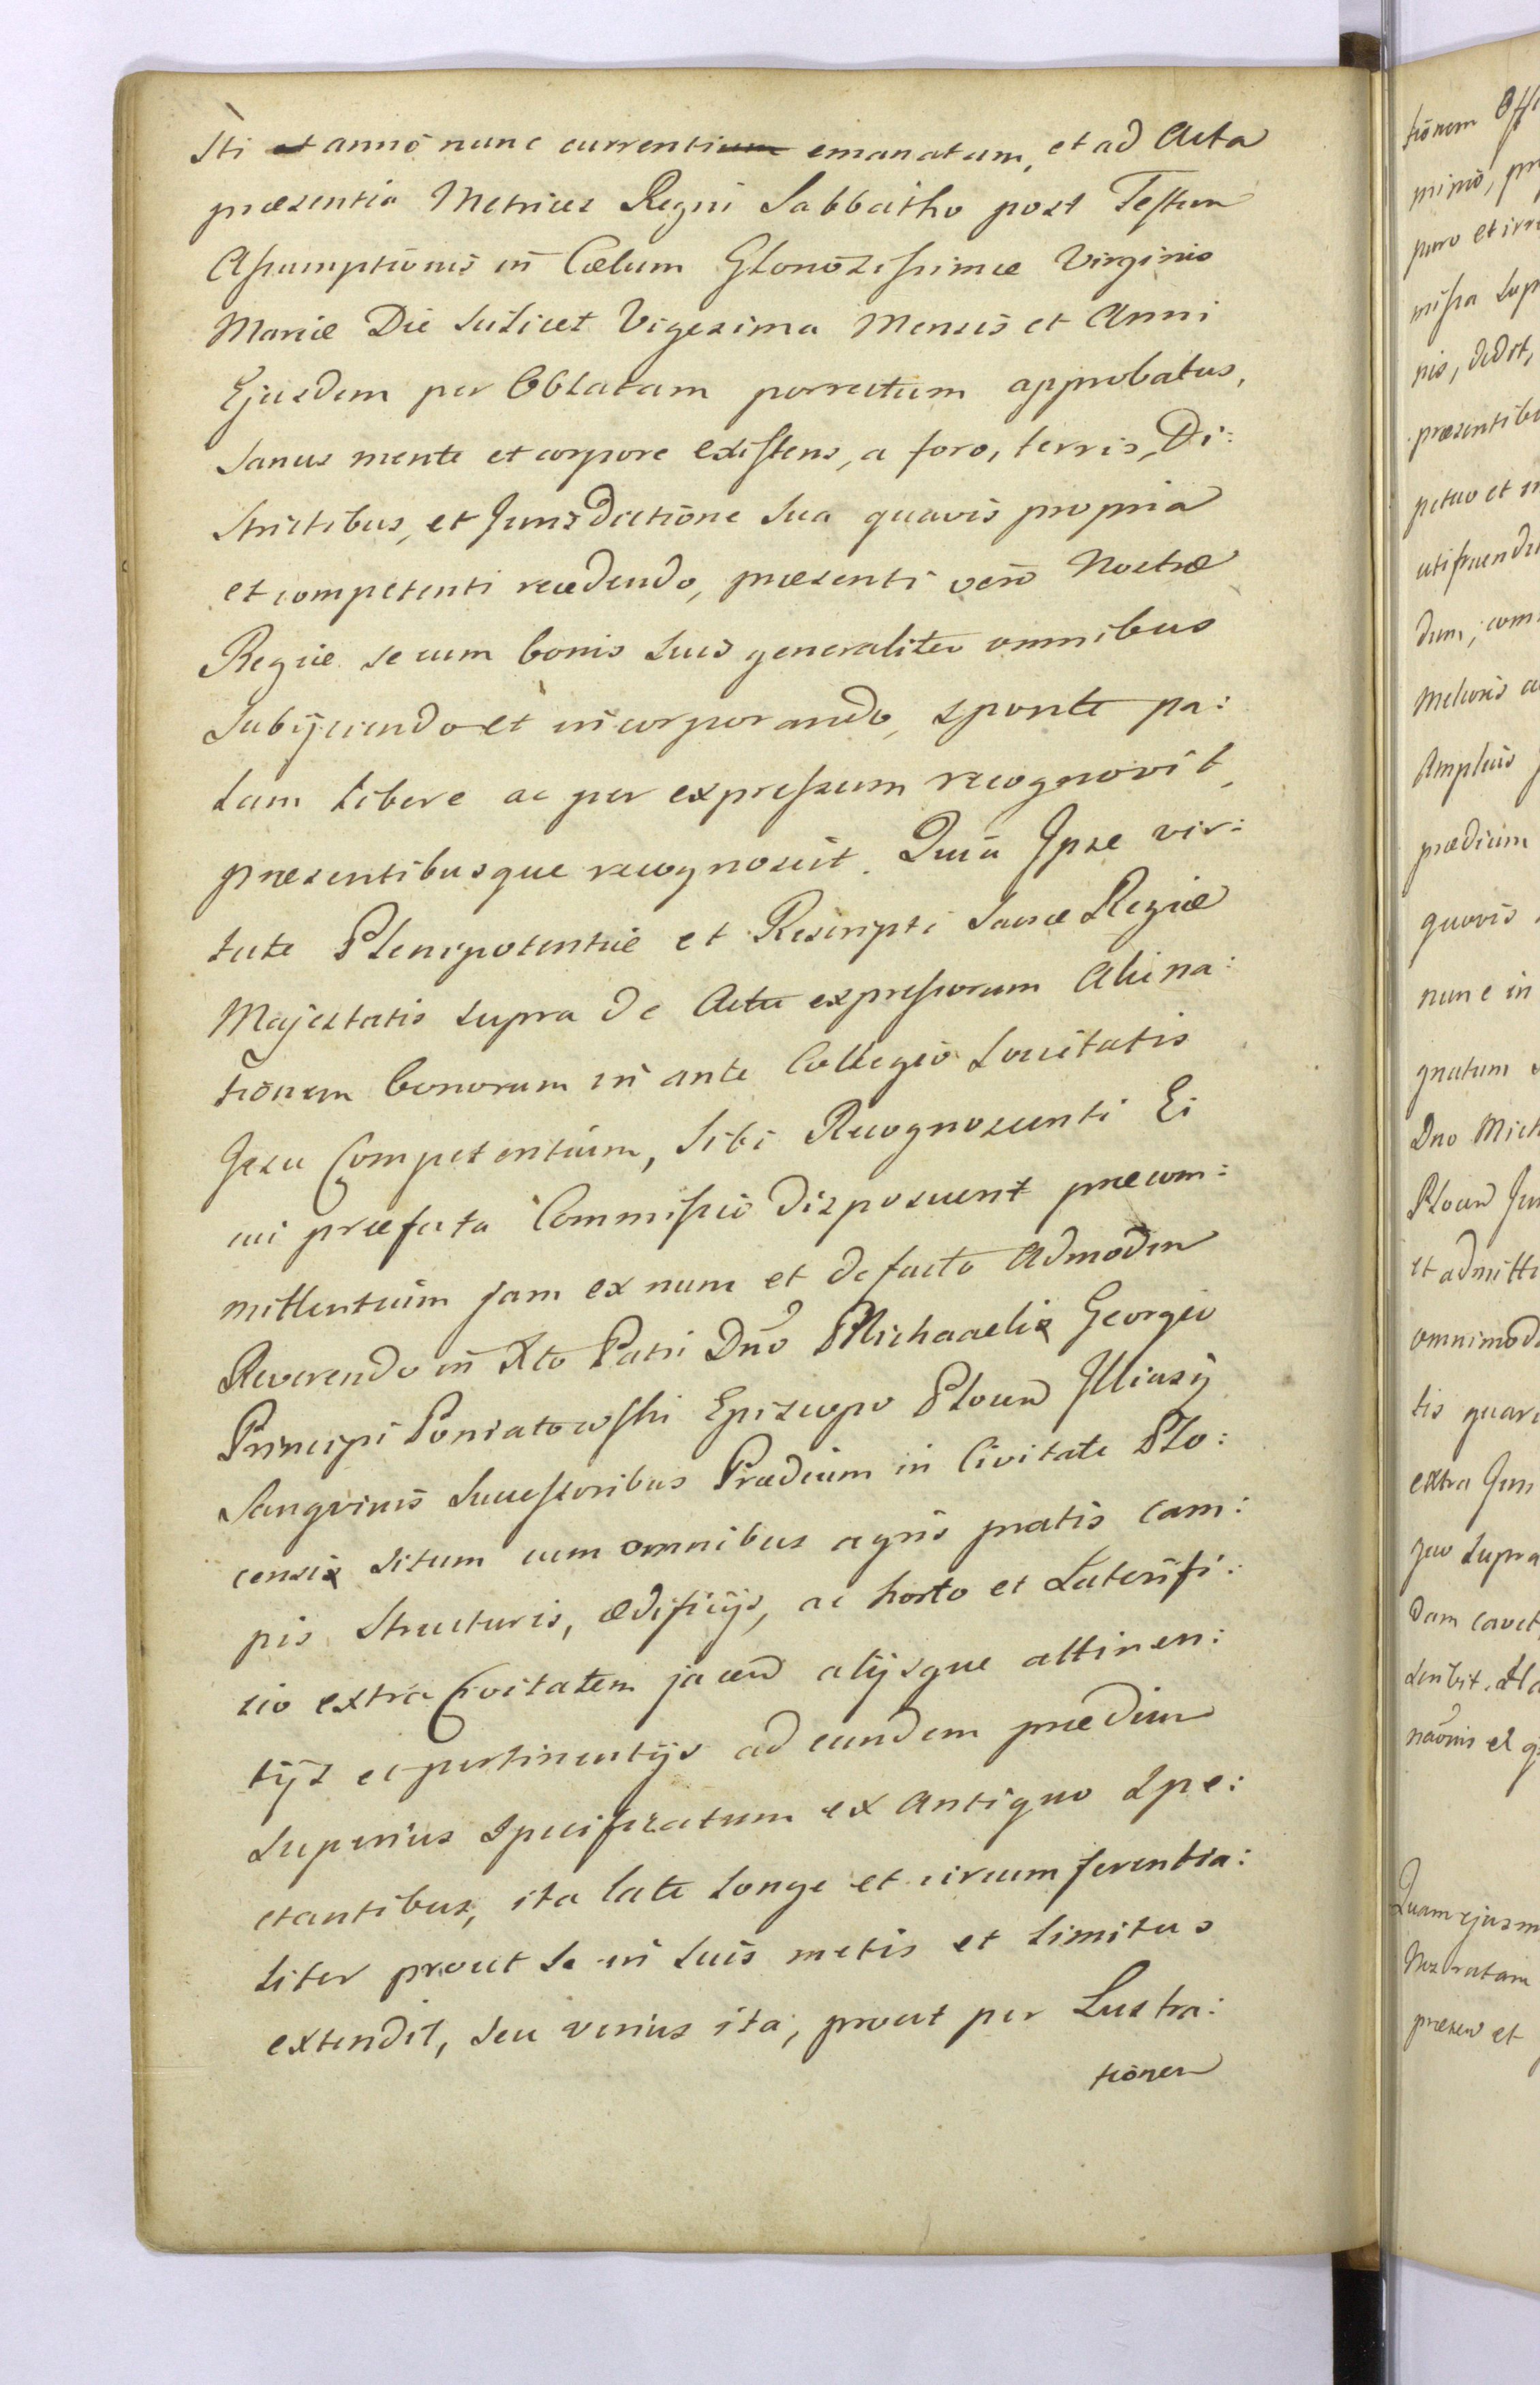 sti et anno nunc currentium emanatum, et ad Acta
præsentia Metrices Regni Sabbatho post Festum
Assumptionis in Cælum Gloriosissimæ Virginis
Mariæ Die scilicet Vigesima Mensis et Anni
Ejusdem per Oblatam porrectum approbatus,
Sanus mente et corpore existens, a foro, terris, Di:
strictibus, et Jurisdictione sua quavis propria
et competenti recedendo, præsenti vero Nostræ
Regiæ se cum bonis suis generaliter omnibus
Subijciendo et incorporando, sponte pa:
lam libere ac per expressum recognovit,
præsentibusque recognoscit. Quia Ipse vir:
tute Plenipotentiæ et Rescripti Sacræ Regiæ
Majestatis supra de Actu expressorum Aliena:
tionem bonorum in ante Collegio Societatis
Jesu Competentium, Sibi Recognoscenti Ei
cui præfata Commissio disposuerit præcom:
mittentium jam ex nunc et de facto Admodm
Reverendo in Xto Patri Dno Michaelis Georgio
Principi Poniatowski Episcopo Plocen Illiusq
Sangvinis Successoribus Prædium in Civitate Plo:
censis situm cum omnibus agris pratis cam:
pis Structuris, ædificijs, ac horto et Laterifi:
cio extra Civitatem jacen alijsque attinen:
tijs et pertinentijs ad eundem prædium
superius specificatum ex antiquo spe:
ctantibus, ita late longe et circumferentia:
liter prout se in suis metis et limitus
extendit, seu verius ita, prout per Lustra:
tionem
tionem
primo, pr
puro et irre
missa sup
nis, dedit,
præsentibu
petuo et in
utifruendu
dum, com
Melioris a
Amplius
prædium
quovis
nunc in
gnatum
Dno Mich
Plocen Ju
et admitte
omnimod
tis guar
extra Juri
geo supra
dam cavet,
Quam ejusm
præsen et